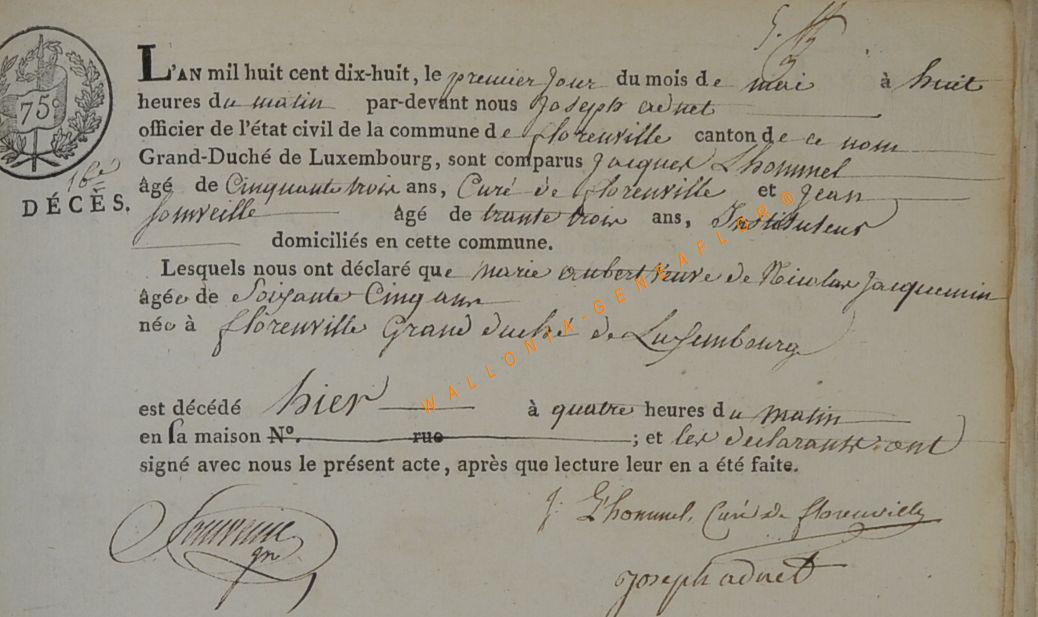 75c
16e
DÉCÈS.
L'AN mil huit cent dix-huit, le premier Jour du mois de mai à huit
heures du matin par-devant nous Joseph adnet
officier de l'état civil de la commune de florenville canton de ce nom
Grand-Duché de Luxembourg, sont comparus Jacques Lhommel
âgé de Cinquante trois ans, Curé de florenville et Jean
âgé de trante trois ans, Instituteur
domiciliés en cette commune.
Lesquels nous ont déclaré que marie aubert veuve de Nicolas Jacquemin
âgée de Soixante Cinq ans
née à florenville Grand duché de Luxembourg
est décédé hier à quatre heures du matin
en sa maison N°. rue ; et les déclarants ont
signé avec nous le présent acte, après que lecture leur en a été faite.
J. Lhommel, Curé de florenville
Joseph adnet
WALLONIA-GENEAFLOR®